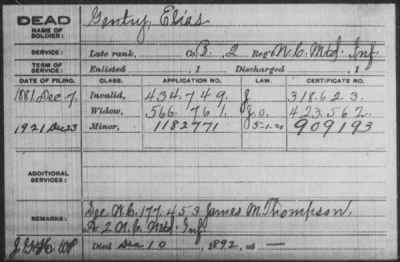 DEAD Gentry, Elias
NAME OF SOLDIER:
SERVICE: Late rank, Co. B, 2 Reg't N.C. Mtd. Inf.
TERM OF SERVICE: Enlisted , 1 Discharged , 1
DATE OF FILING. CLASS. APPLICATION NO. LAW. CERTIFICATE NO.
1881 Dec 7. Invalid, 434.749. 318.623.
Widow, 566.761. 423.562.
1921 Dec 23 Minor, 1182771 5-1-20 909193
ADDITIONAL SERVICES:
REMARKS: See W.C. 177.453 James M. Thompson,
A. 2 N.C. Mtd. Inf.
Died Dec 10, 1892, at —